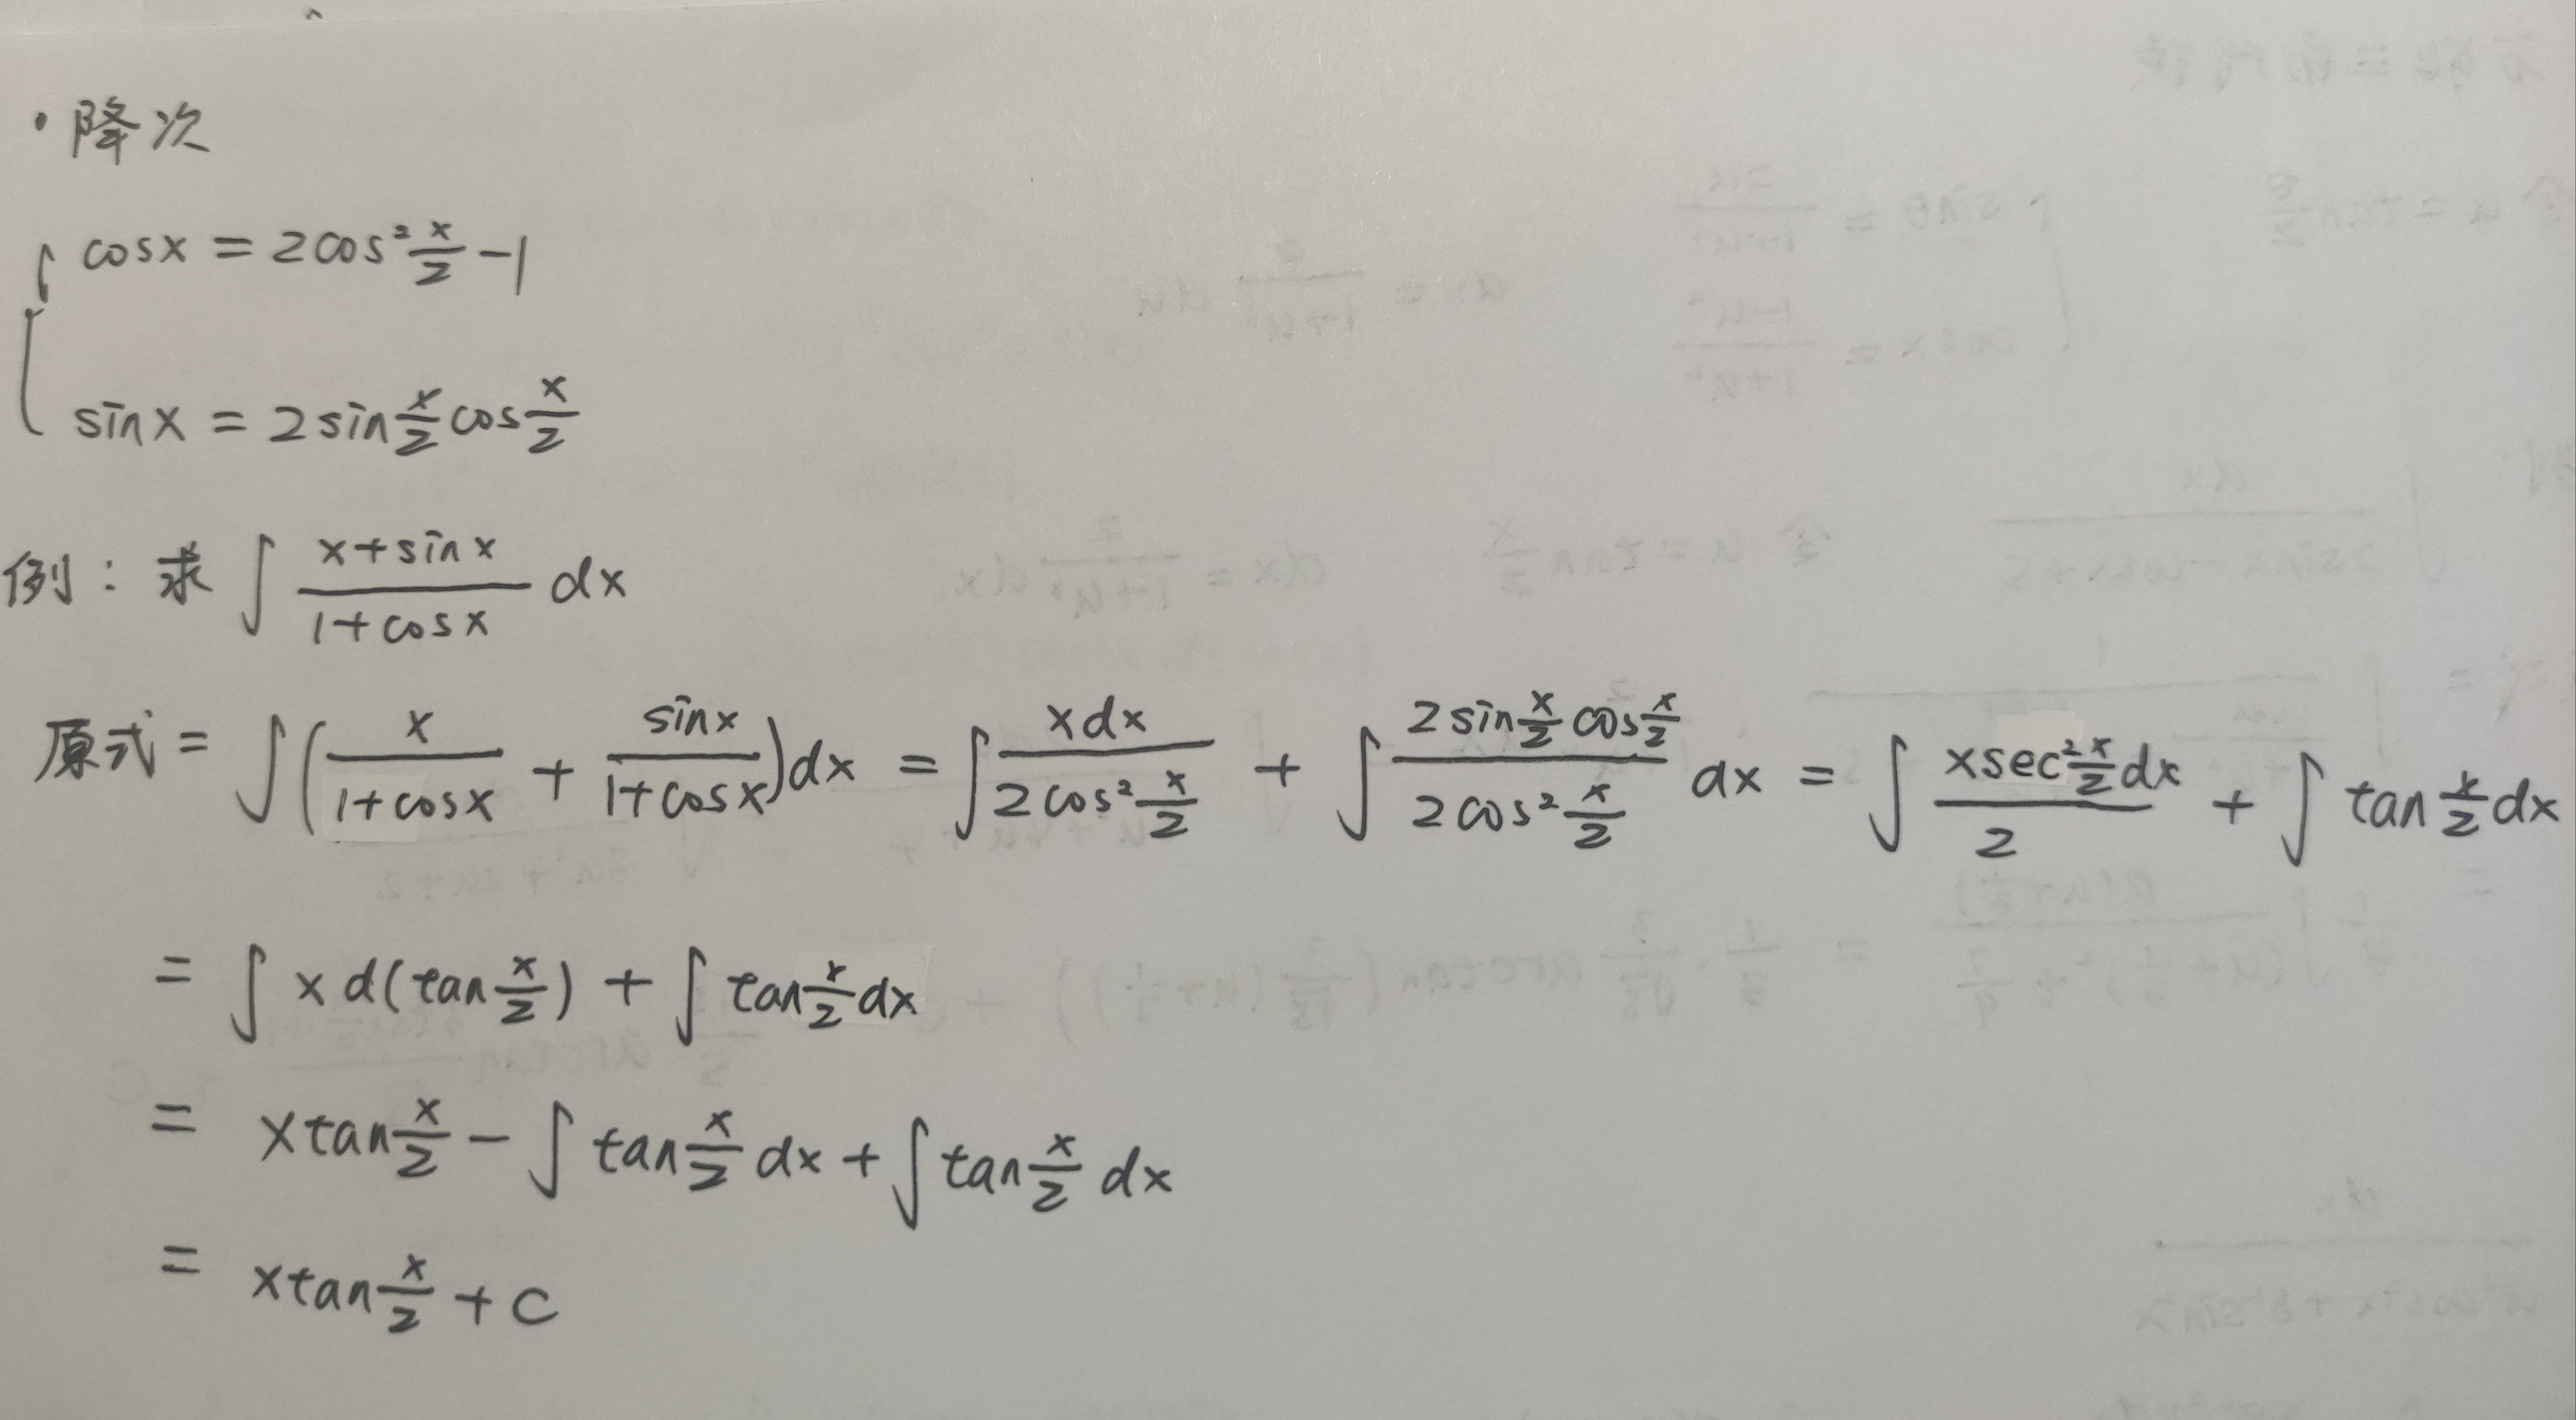 ·降次
cosx = 2cos²x/2 - 1
sinx = 2sin x/2 cos x/2
例：求 ∫ (x+sinx)/(1+cosx) dx
原式 = ∫(x/(1+cosx) + sinx/(1+cosx))dx = ∫ xdx/(2cos² x/2) + ∫ (2sin x/2 cos x/2)/(2cos² x/2) dx = ∫ (xsec² x/2 dx)/2 + ∫ tan x/2 dx
= ∫ x d(tan x/2) + ∫ tan x/2 dx
= xtan x/2 - ∫ tan x/2 dx + ∫ tan x/2 dx
= xtan x/2 + C